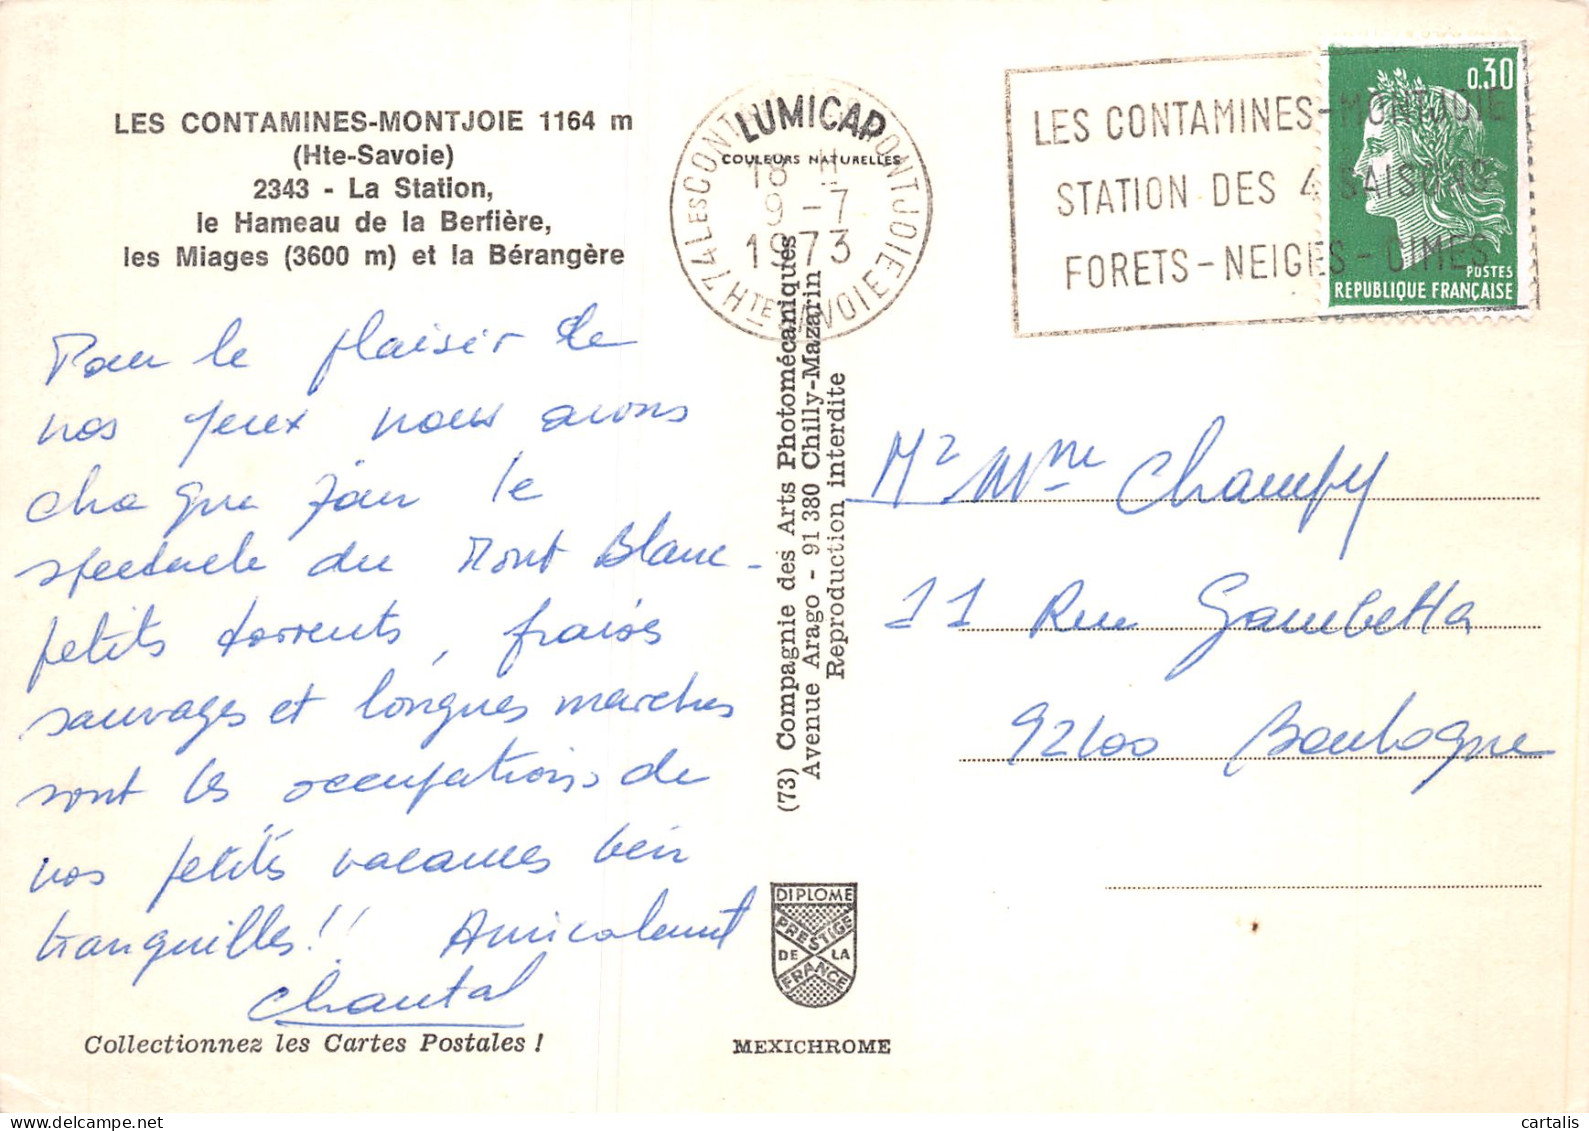 LES CONTAMINES-MONTJOIE 1164 m
(Hte-Savoie)
2343 - La Station,
le Hameau de la Berfière,
les Miages (3600 m) et la Bérangère
Pour le plaisir de
nos yeux nous avons
chaque jour le
spectacle du Mont Blanc -
petits torrents, fraises
sauvages et longues marches
sont les occupations de
nos petites vacances bien
tranquilles!! Amicalement
Chantal
Collectionnez les Cartes Postales !
LUMICAP
COULEURS NATURELLES
74 LES CONTAMINES MONTJOIE
HTE SAVOIE
18 H
9 - 7
1973
(73) Compagnie des Arts Photomécaniques
Avenue Arago - 91 380 Chilly-Mazarin
Reproduction interdite
DIPLOME
PRESTIGE
DE LA
FRANCE
MEXICHROME
LES CONTAMINES-MONTJOIE
STATION DES 4 SAISONS
FORETS - NEIGES - CIMES
0,30
POSTES
REPUBLIQUE FRANÇAISE
Mr Mme Champy
11 Rue Gambetta
92100 Boulogne
cartalis